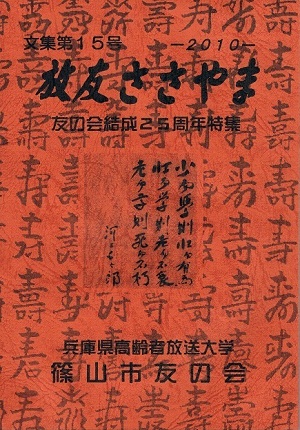 文集第15号 —2010—
放友ささやま
友の会結成25周年特集
少而学則壮而有為
壮而学則老而不衰
老而学則死而不朽
兵庫県高齢者放送大学
篠山市友の会